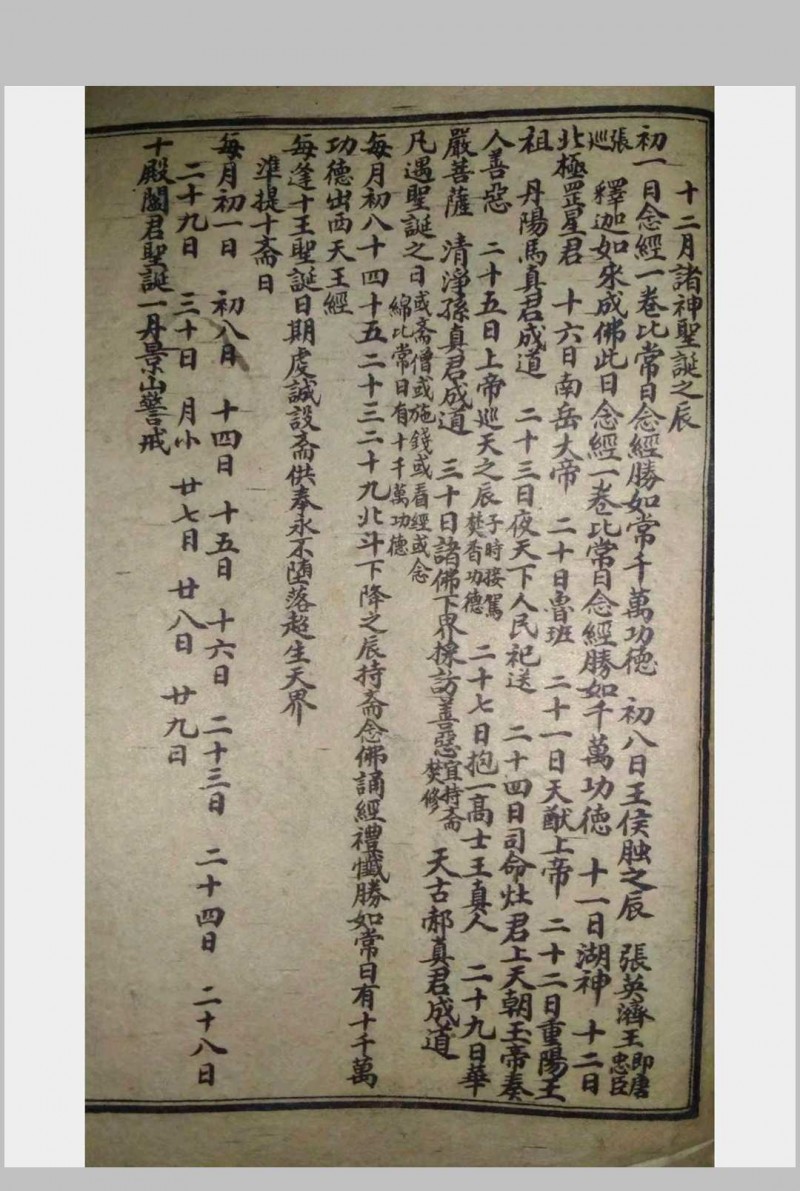 十二月諸神聖誕之辰
初一日念經一卷比常日念經勝如常千萬功德 初八日王侯臘之辰 張英濟王即唐忠臣
張巡 釋迦如來成佛此日念經一卷比常日念經勝如千萬功德 十一日湖神 十二日
北極罡星君 十六日南岳大帝 二十日魯班 二十一日天猷上帝 二十二日重陽王
祖 丹陽馬真君成道 二十三日夜天下人民祀送 二十四日司命灶君上天朝玉帝奏
人善惡 二十五日上帝巡天之辰子時接駕焚香功德 二十七日抱一高士王真人 二十九日華
嚴菩薩 清淨孫真君成道 三十日諸佛下界探訪善惡宜持齋焚修 天古郝真君成道
凡遇聖誕之日或斋僧或施錢或看經或念綿比常日有十千萬功德
每月初八十四十五二十三二十九北斗下降之辰持斋念佛誦經禮懺勝如常日有十千萬
功德出西天王經
每逢十王聖誕日期虔誠設斋供奉永不堕落超生天界
準提十斋日
每月初一日 初八日 十四日 十五日 十六日 二十三日 二十四日 二十八日
二十九日 三十日 月小 廿七日 廿八日 廿九日
十殿閻君聖誕一丹景山警戒